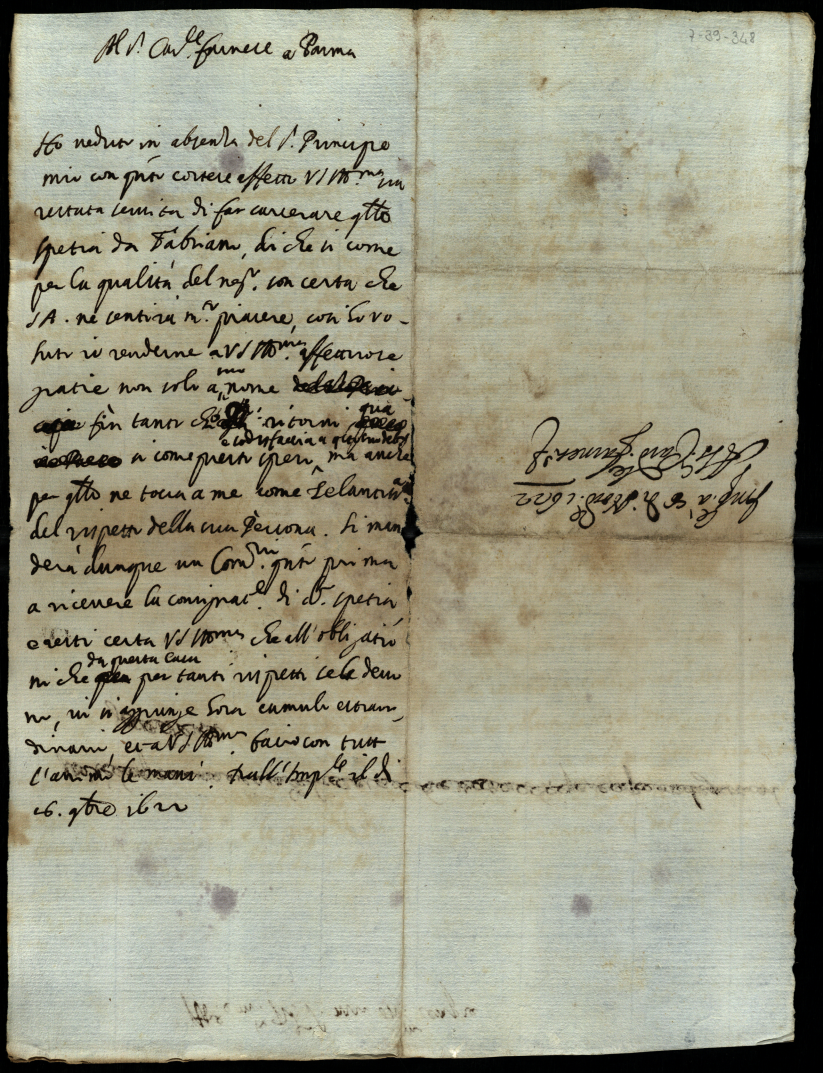 7-39-348
Al S.r Card.le Farnese a Parma
Ho veduto in absenza del S.r Principe
mio con q.nto cortese affetto VS Ill.ma sia
restata servita di far carcerare q.llo
spetial da Fabriano, di che si come
per la qualità del neg.o son certo che
SA. ne sentirà m.to piacere, così ho vo-
luto io renderne a VS Ill.ma affettuose
gratie non solo a suo nome
fin tanto che ritorni qua
e sodisfaccia a
si come presto spero, ma anche
per q.llo ne tocca a me come
del rispetto della sua Persona. Si man
derà dunque un Com.rio q.nto prima
a ricevere la consignat.e di d.o spetial
e resti certa VS Ill.ma che all' obligatio
da questa casa
ni che per tanti rispetti se le devo
no, vi si aggiunge hora cumulo estraor
dinario, et a VS Ill.ma bacio con tutto
l'animo le mani. Dall' Imp.le il dì
26. 9bre 1622
Imp.le a 26 di Nov.e 1622
Al S. Card.le Farnese